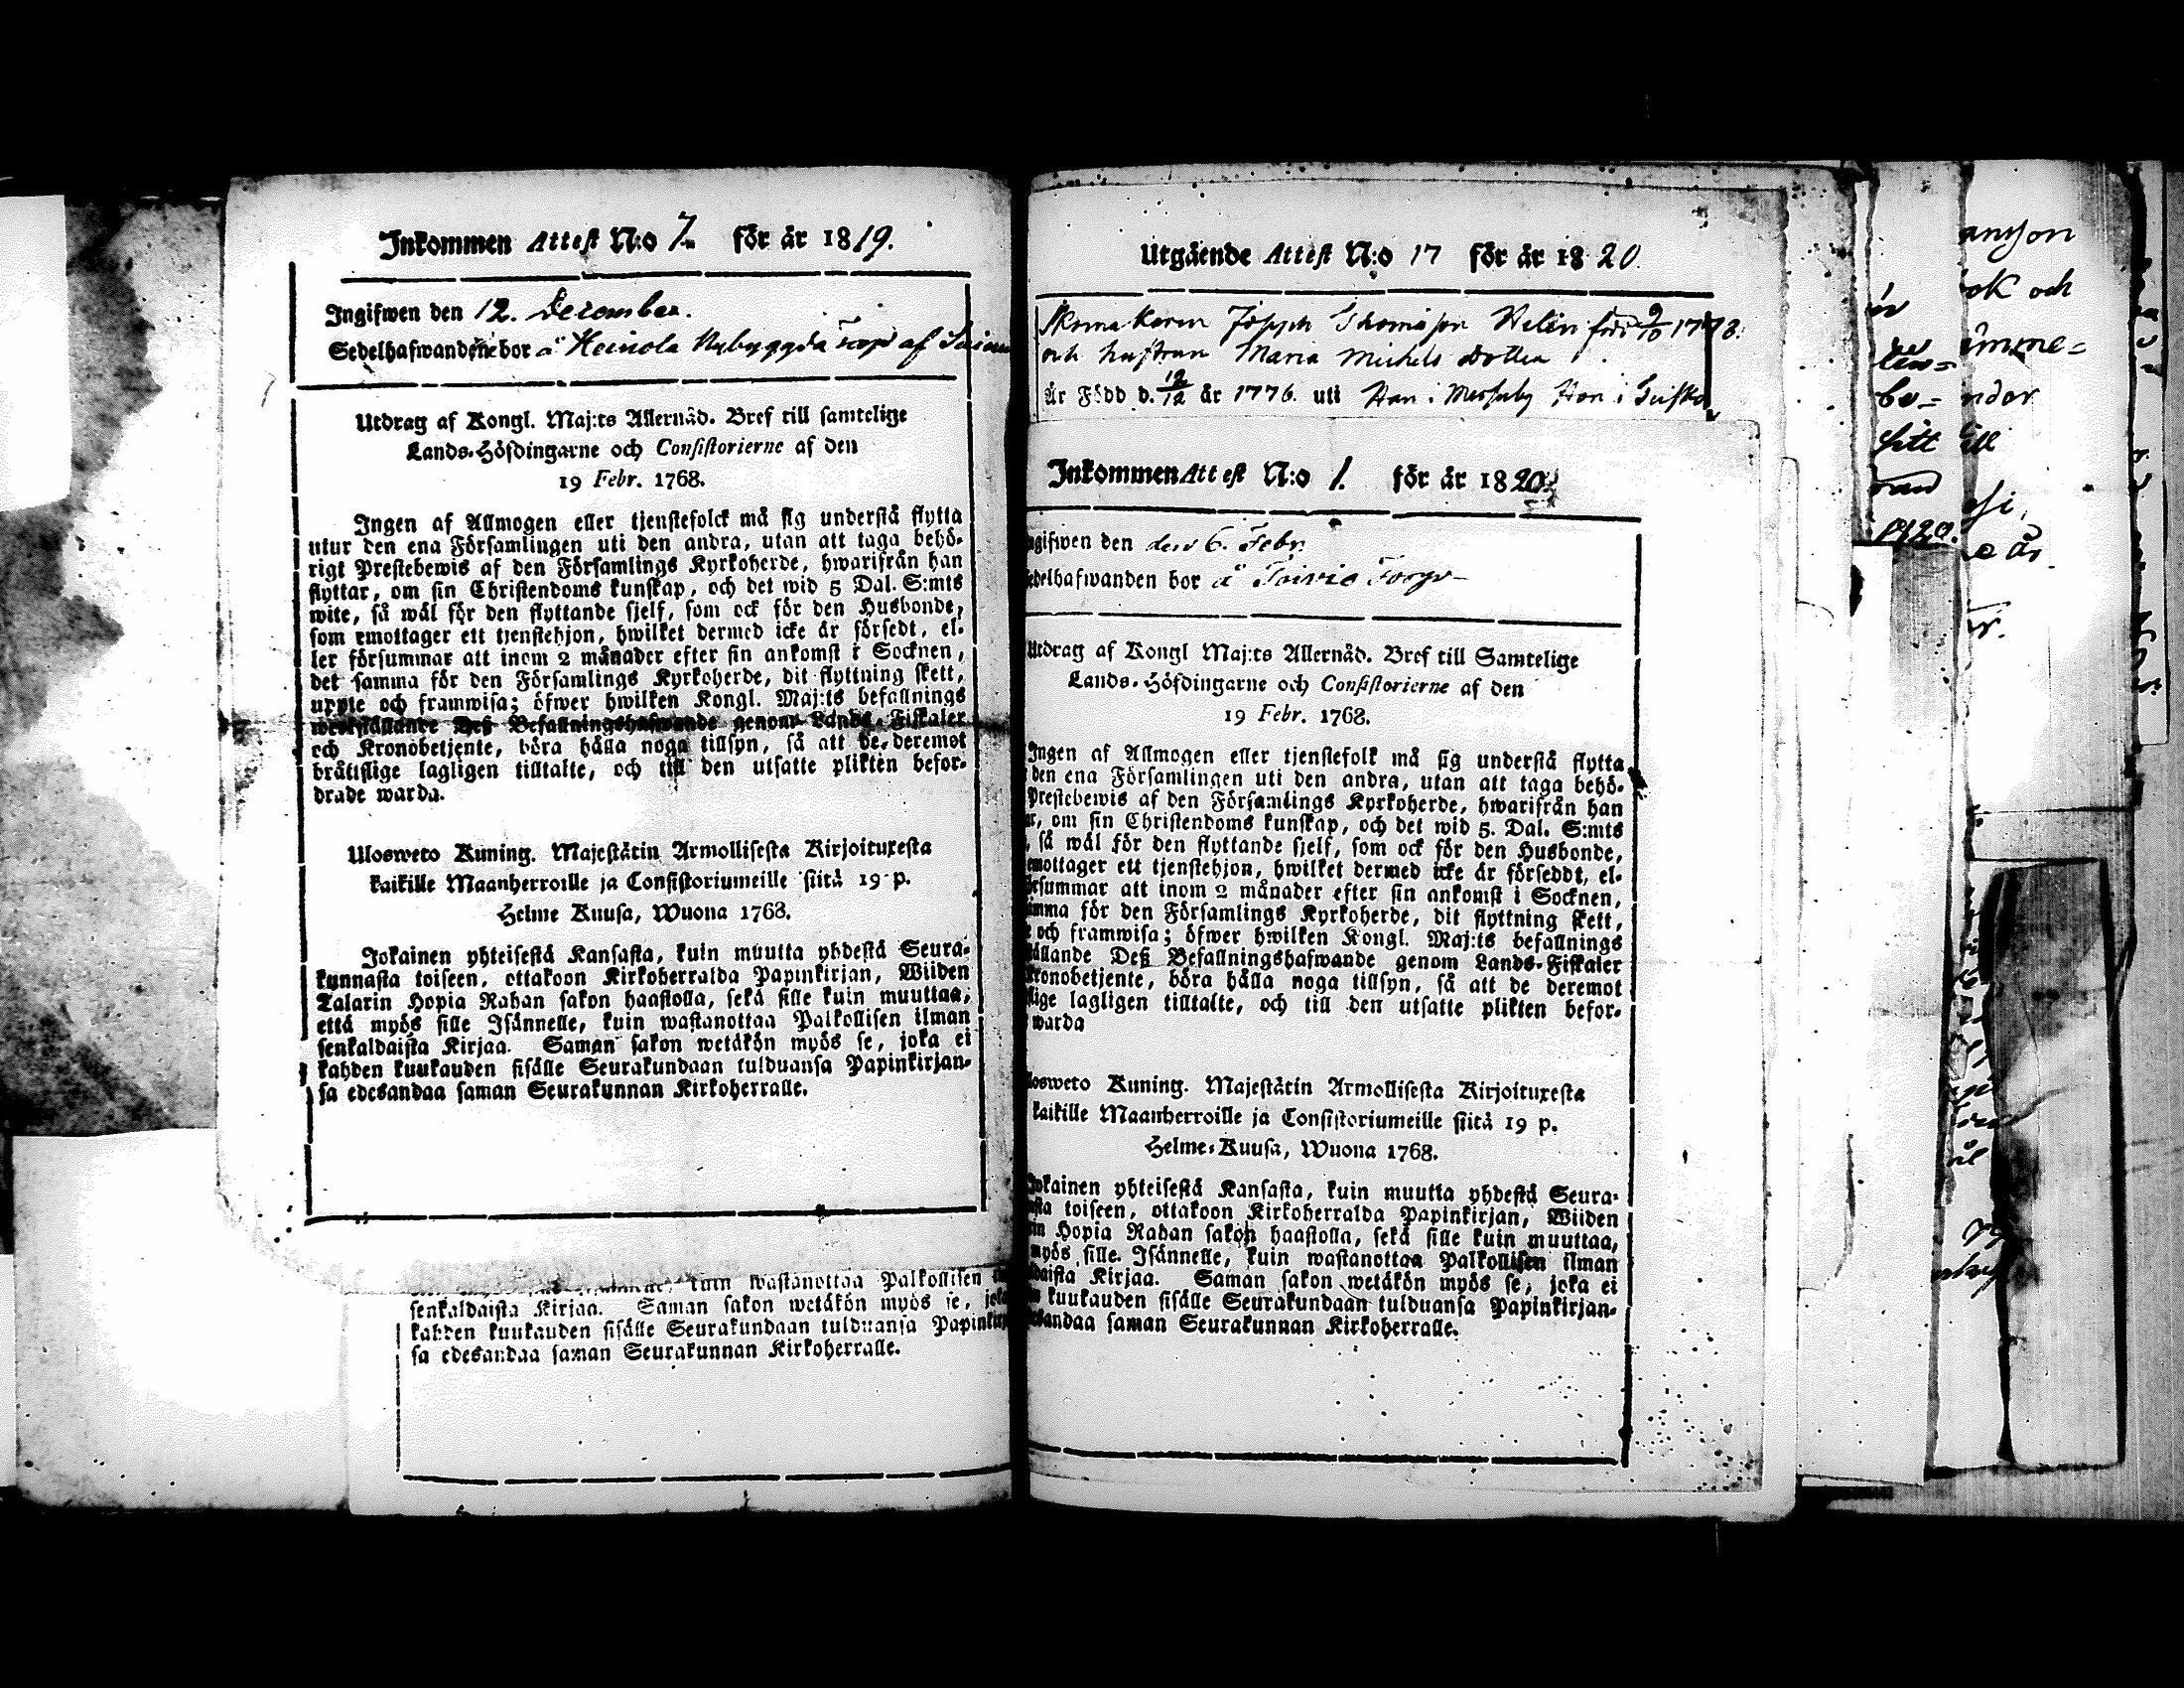 Inkommen Attest N:o 7. för år 1819.
Ingifwen den 12. December.
Sedelhafwanden bor å Heinola Nybyggda Torp af
Utdrag af Kongl. Maj:ts Allernåd. Bref till samtelige
Lands-Höfdingarne och Consistorierne af den
19 Febr. 1768.
Ingen af Allmogen eller tjenstefolck må sig understå flytta
utur den ena Församlingen uti den andra, utan att taga behö-
rigt Prestebewis af den Församlings Kyrkoherde, hwarifrån han
flyttar, om sin Christendoms kunskap, och det wid 5 Dal. S:mts
wite, så wäl för den flyttande sjelf, som ock för den Husbonde,
som emottager ett tjenstehjon, hwilket dermed icke är försedt, el-
ler försummar att inom 2 månader efter sin ankomst i Socknen,
det samma för den Församlings Kyrkoherde, dit flyttning skett,
uppte och framwisa; öfwer hwilken Kongl. Maj:ts befallnings
werkställande Deß Befallningshafwande genom Lands-Fiskaler
och Kronobetjente, böra hålla noga tillsyn, så att de deremot
brätislige lagligen tilltalte, och till den utsatte plikten befor-
drade warda.
Ulosweto Kuning. Majestätin Armollisesta Kirjoituxesta
kaikille Maanherroille ja Consistoriumeille siitä 19 p.
Helme Kuusa, Wuona 1768.
Jokainen yhteisestä Kansasta, kuin muutta yhdestä Seura-
kunnasta toiseen, ottakoon Kirkoherralda Papinkirjan, Wiiden
Talarin Hopia Rahan sakon haastolla, sekä sille kuin muuttaa,
että myös sille Isännelle, kuin wastanottaa Palkollisen ilman
senkaldaista Kirjaa. Saman sakon wetäkön myös se, joka ei
kahden kuukauden sisälle Seurakundaan tulduansa Papinkirjan-
sa edesandaa saman Seurakunnan Kirkoherralle.
kuin wastanottaa Palkollisen
senkaldaista Kirjaa. Saman sakon wetäkön myös se, joka
kahden kuukauden sisälle Seurakundaan tulduansa Papinkirj
sa edesandaa saman Seurakunnan Kirkoherralle.
Utgående Attest N:o 17 för år 1820.
Skomakaren Joseph Thomasson Velin född 9/10 1773.
och hustrun Maria Michels dotter
Är Född d. 12/12 år 1776. uti Han i Messuby Hon i
Inkommen Attest N:o 1. för år 1820.
ngifwen den den 6. Febr.
edelhafwanden bor å Toivio Torp
Utdrag af Kongl Maj:ts Allernåd. Bref till Samtelige
Lands-Höfdingarne och Consistorierne af den
19 Febr. 1768.
Ingen af Allmogen eller tjenstefolk må sig understå flytta
den ena Församlingen uti den andra, utan att taga behö-
Prestebewis af den Församlings Kyrkoherde, hwarifrån han
r, om sin Christendoms kunskap, och det wid 5. Dal. S:mts
, så wäl för den flyttande sjelf, som ock för den Husbonde,
emottager ett tjenstehjon, hwilket dermed icke är förseddt, el-
rsummar att inom 2 månader efter sin ankomst i Socknen,
amma för den Församlings Kyrkoherde, dit flyttning skett,
och framwisa; öfwer hwilken Kongl. Maj:ts befallnings
ällande Deß Befallningshafwande genom Lands-Fiskaler
Kronobetjente, böra hålla noga tillsyn, så att de deremot
slige lagligen tilltalte, och till den utsatte plikten befor-
warda
losweto Kuning. Majestätin Armollisesta Kirjoituxesta
kaikille Maanherroille ja Consistoriumeille siitä 19 p.
Helme-Kuusa, Wuona 1768.
Jokainen yhteisestä Kansasta, kuin muutta yhdestä Seura-
sta toiseen, ottakoon Kirkoherralda Papinkirjan, Wiiden
in Hopia Rahan sakon haastolla, sekä sille kuin muuttaa,
myös sille Isännelle, kuin wastanottaa Palkollisen ilman
daista Kirjaa. Saman sakon wetäkön myös se, joka ei
n kuukauden sisälle Seurakundaan tulduansa Papinkirjan-
esandaa saman Seurakunnan Kirkoherralle.
be-
sitt
1820.
ok och
imme=
ndor
ill